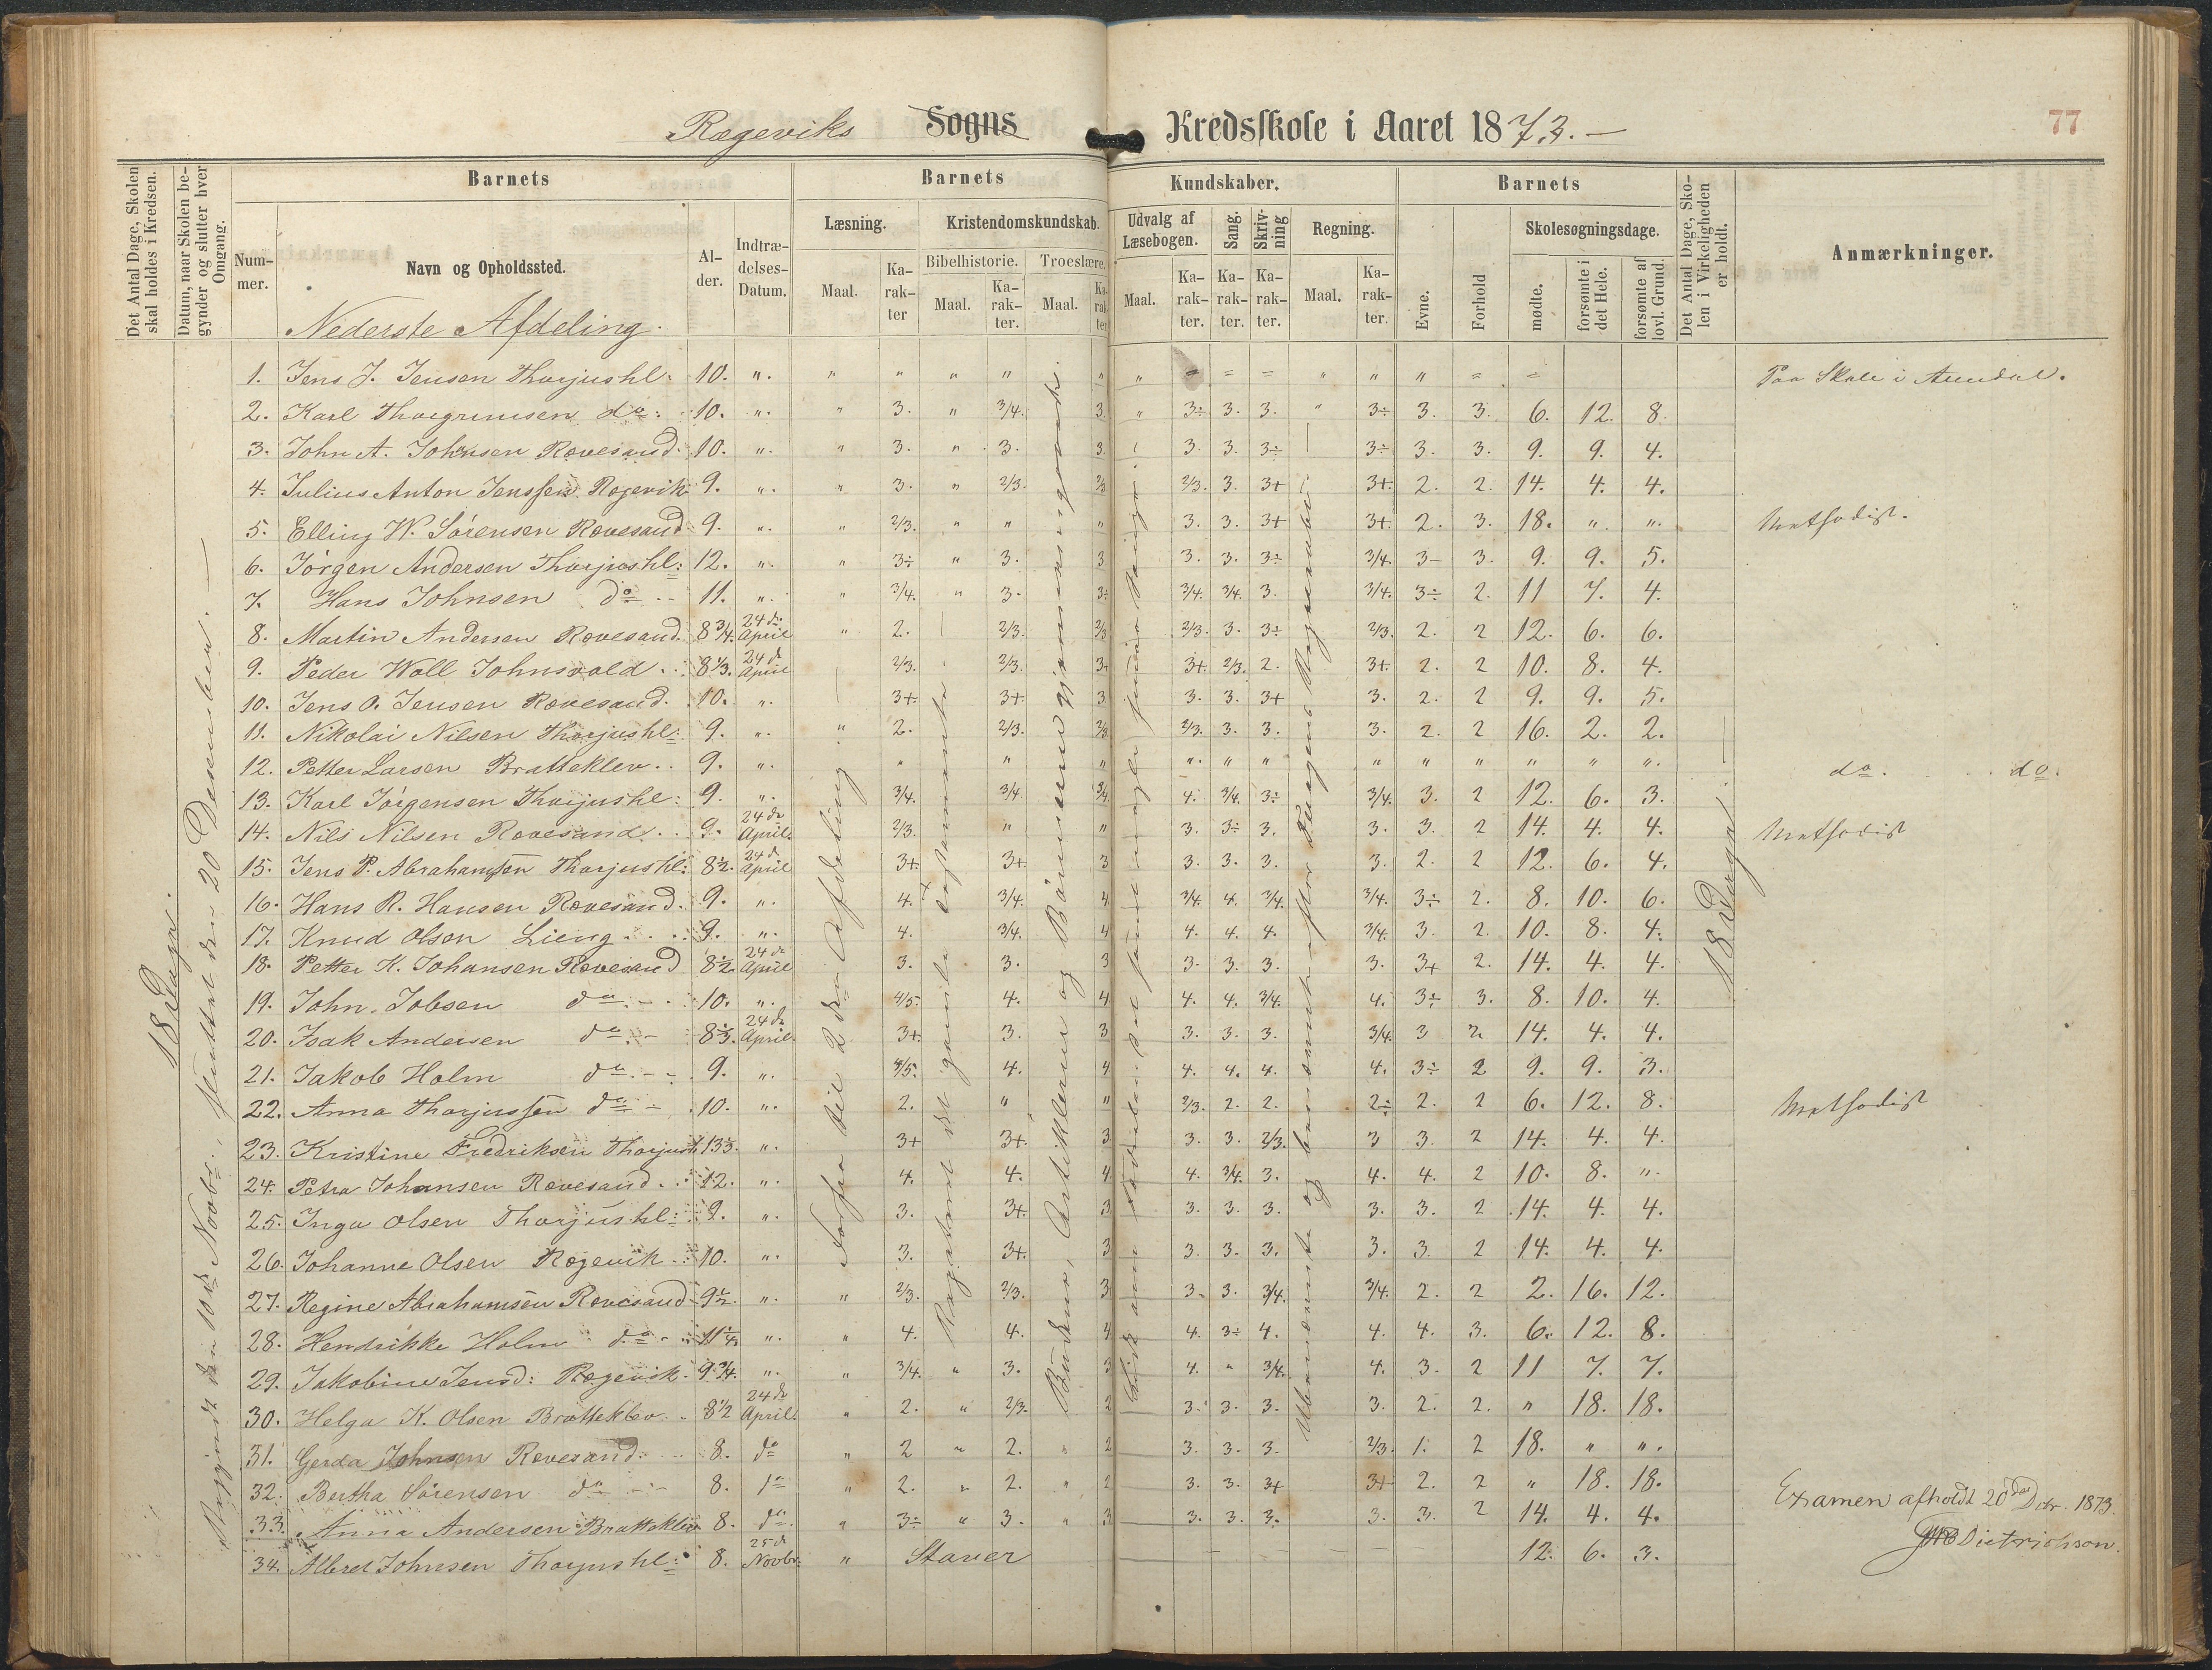 Rægeviks Sogns Kredsskole i Aaret 1873.—
77
Det Antal Dage, Skolen skal holdes i Kredsen.
Datum, naar Skolen begynder og slutter hver Omgang.
Barnets
Nummer.
Navn og Opholdssted.
Alder.
Indtrædelses-Datum.
Barnets Kundskaber.
Læsning.
Maal.
Karakter
Kristendomskundskab.
Bibelhistorie.
Maal.
Karakter.
Troeslære.
Maal.
Karakter
Udvalg af Læsebogen.
Maal.
Karakter.
Sang.
Karakter.
Skrivning
Karakter.
Regning.
Maal.
Karakter.
Barnets
Evne.
Forhold
Skolesøgningsdage.
mødte.
forsømte i det Hele.
forsømte af lovl. Grund.
Det Antal Dage, Skolen i Virkeligheden er holdt.
Anmærkninger.
Nederste Afdeling.
1. Jens J. Jensen Thorjushl: 10. ". " " " " " " = = = " " " = = Paa Skole i Arendal.
2. Karl Thorgrimsen do: 10. ". " 3. " 3/4. 3. " 3÷ 3. 3. " 3÷ 3. 3. 6. 12. 8.
3. John A. Johnsen Rævesand. 10. ". " 3. " 3. 3. 3. 3. 3÷ 3÷ 3. 3. 9. 9. 4.
4. Julius Anton Jenssen Rægevik 9. ". " 3. " 2/3. 2/3 2/3. 3. 3+ 3+. 2. 2. 14. 4. 4.
5. Elling W. Sörensen Rævesand 9. ". " 2/3. " " " 3. 3. 3+ 3+. 2. 3. 18. ". ". Methodist.
6. Jörgen Andersen Thorjushl: 12. ". " 3÷ " 3. 3 3. 3. 3÷ 3/4. 3- 3. 9. 9. 5.
7. Hans Johnsen do 11. ". " 3/4. " 3. 3÷ 3/4. 3/4. 3. 3/4. 3÷ 2. 11 7. 4.
8. Martin Andersen Rævesand. 8 3/4. 24de April " 2. 2/3. 2/3 2/3. 3. 3÷ 2/3. 2. 2 12. 6. 6.
9. Peder Woll Johnsvold 8 1/3. 24d April 2/3. 2/3. 3+ 3+. 2/3. 2. 3+. 2. 2 10. 8. 4.
10. Jens O. Jensen Rævesand. 10. ". 3+. 3+. 3 3. 3. 3+ 3. 2. 2 9. 9. 5.
11. Nikolai Nilsen Thorjushl: 9. ". " 2. 2/3. 2/3 2/3. 3. 3. 3. 2. 2 16. 2. 2.
12. Petter Larsen Bratteklev. 9. ". " " " ". " " " " " " " ". do. do.
13. Karl Jörgensen Thorjushl: 9. ". 3/4. 3/4 3/4 4. 3/4. 3÷ 3/4. 3. 2 12. 6. 3.
14. Nils Nilsen Rævesand. 9. 24de April. 2/3. " " 3. 3÷ 3. 3. 3. 2 14. 4. 4. Methodist
15. Jens P. Abrahamsen Thorjushl: 8 1/2. 24d. April 3+. 3+. 3 3. 3. 3. 3. 2. 2 12. 6. 4.
16. Hans R. Hansen Rævesand. 9. ". 4. 3/4. 4 3/4. 4. 3/4. 3/4. 3÷ 2. 8. 10. 6.
17. Knud Olsen Lieng 9. ". 4. 3/4. 4 4. 4. 4. 3/4. 3. 2. 10. 8. 4.
18. Petter K. Johansen Rævesand 8 1/2. 24de April 3. 3. 3 3. 3. 3. 3. 3+ 2. 14. 4. 4.
19. John Jobsen do 10. ". 4/5. 4. 4 4. 4. 3/4. 4. 3÷ 3. 8. 10. 4.
20. Isak Andersen do 8 1/3. 24de April. 3+. 3. 3 3. 3. 3. 3/4. 3 2 14. 4. 4.
21. Jakob Holm do 9. ". 4/5. 4. 4 4. 4. 4. 4. 3÷ 2 9. 9. 3.
22. Anna Thorjussen do 10. ". 2. " " 2/3. 2. 2. 2÷ 2. 2 6. 12. 8. Methodist
23. Kristine Fredriksen Thorjush 13 1/3. ". 3+ 3+. 3 3. 3. 2/3. 3 3. 2 14. 4. 4.
24. Petra Johansen Rævesand. 12. ". 4. 4. 4. 4. 3/4. 3. 4. 4. 2 10. 8. ".
25. Inga Olsen Thorjushl: 9. ". 3. 3+. 3 3. 3. 3. 3. 3. 2 14. 4. 4.
26. Johanne Olsen Rægevik 10. ". 3. 3+. 3 3. 3. 3. 3. 3. 2 14. 4. 4.
27. Regine Abrahamsen Rævesand 9 1/2. ". " 2/3. 2/3. 3 3. 3. 3/4. 3/4. 2. 2 2. 16. 12.
28. Hendrikke Holm do 11 1/4 ". " 4. 4. 4 4. 3÷ 4. 4. 4. 3. 6. 12. 8.
29. Jakobine Jensd: Rægevik. 9 3/4. ". " 3/4. " 3. 3 4. " 3/4. 4. 3. 2 11 7. 7.
30. Helga K. Olsen Bratteklev 8 1/2 24de April. " 2. " 2/3. 2 3. 3. 3. 3. 2. 2. " 18. 18.
31. Gerda Johnsen Rævesand. 8. do " 2 " 2. " 2 3. 3. 3. 2/3. 1. 2 18. " ".
32. Bertha Sörensen do 8. do " 2. " 2. " 2 3. 3. 3+ 3+ 2. 2 " 18. 18.
33. Anna Andersen Bratteklev 8. do. " 3÷ " 3. " 3 3. 3. 3. 3. 3. 2 14. 4. 4.
34. Albret Johnsen Thorjushl: 8. 25de Novbr. " Staver 12. 6. 3.
18 Dage.
Begyndt den 10de Novbr., sluttet den 20 Desember.
Forfra til 2den Afdeling.
18 Dage
Examen afholdt 20de Dcbr. 1873.
Dietrichson.